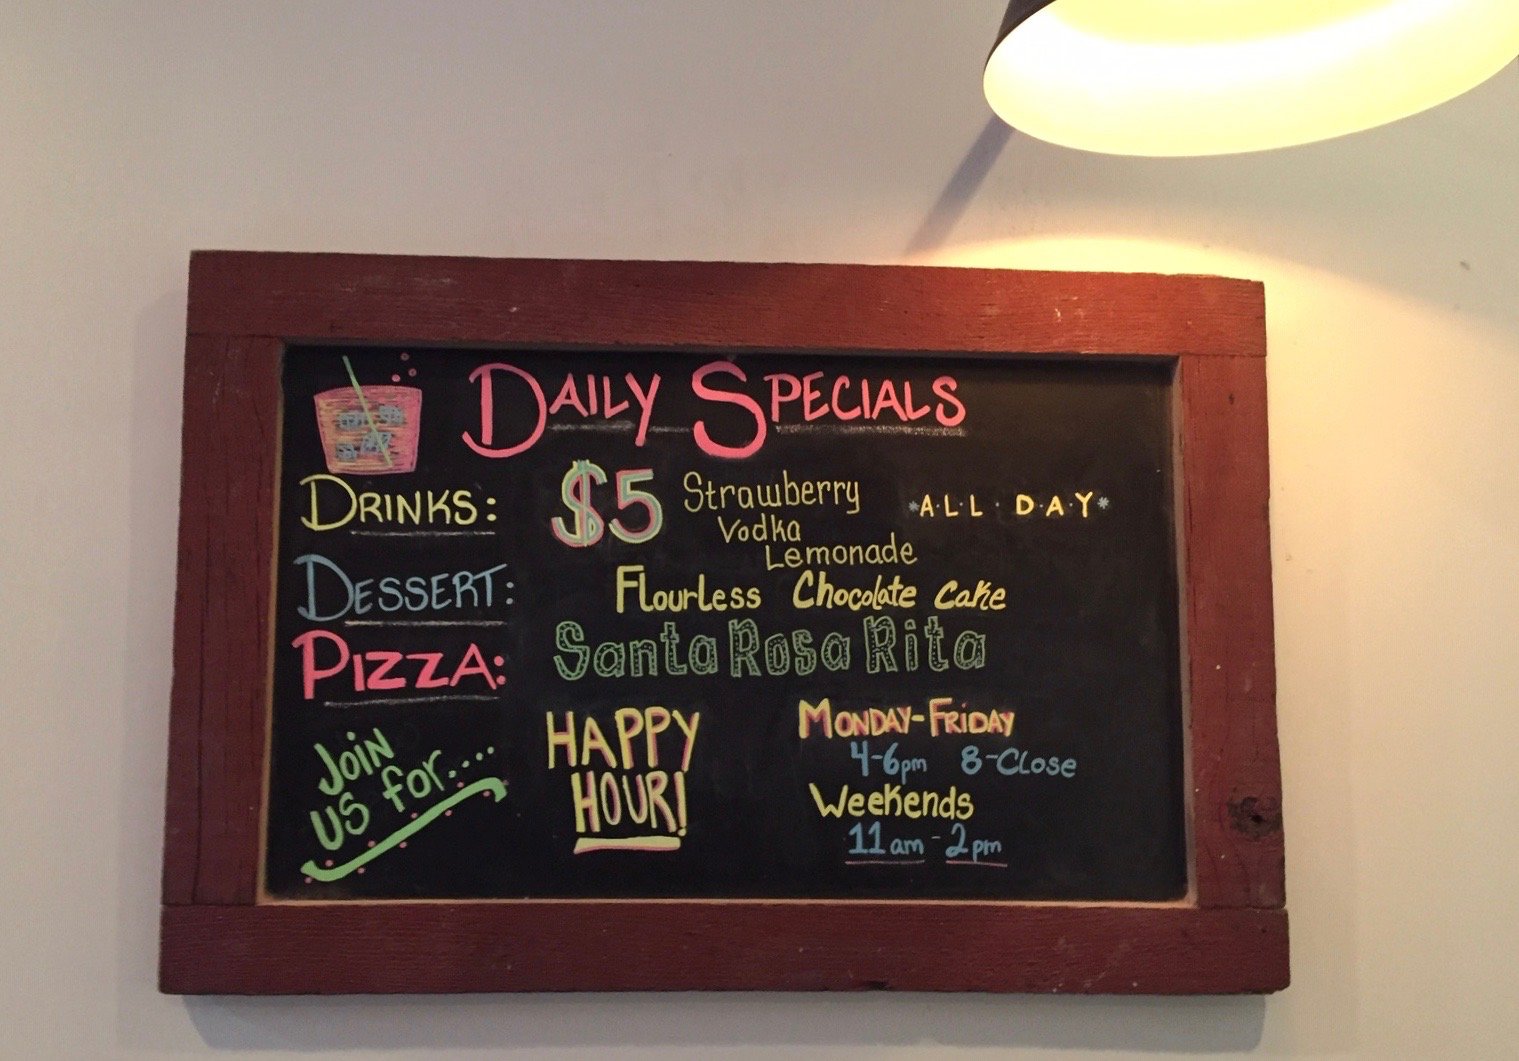 DAILY SPECIALS
DRINKS: $5 Strawberry *A·L·L· D·A·Y*
Vodka
Lemonade
DESSERT: Flourless Chocolate Cake
PIZZA: Santa Rosa Rita
JOIN
US for....
HAPPY
HOUR!
MONDAY-FRIDAY
4-6pm 8-Close
Weekends
11am-2pm